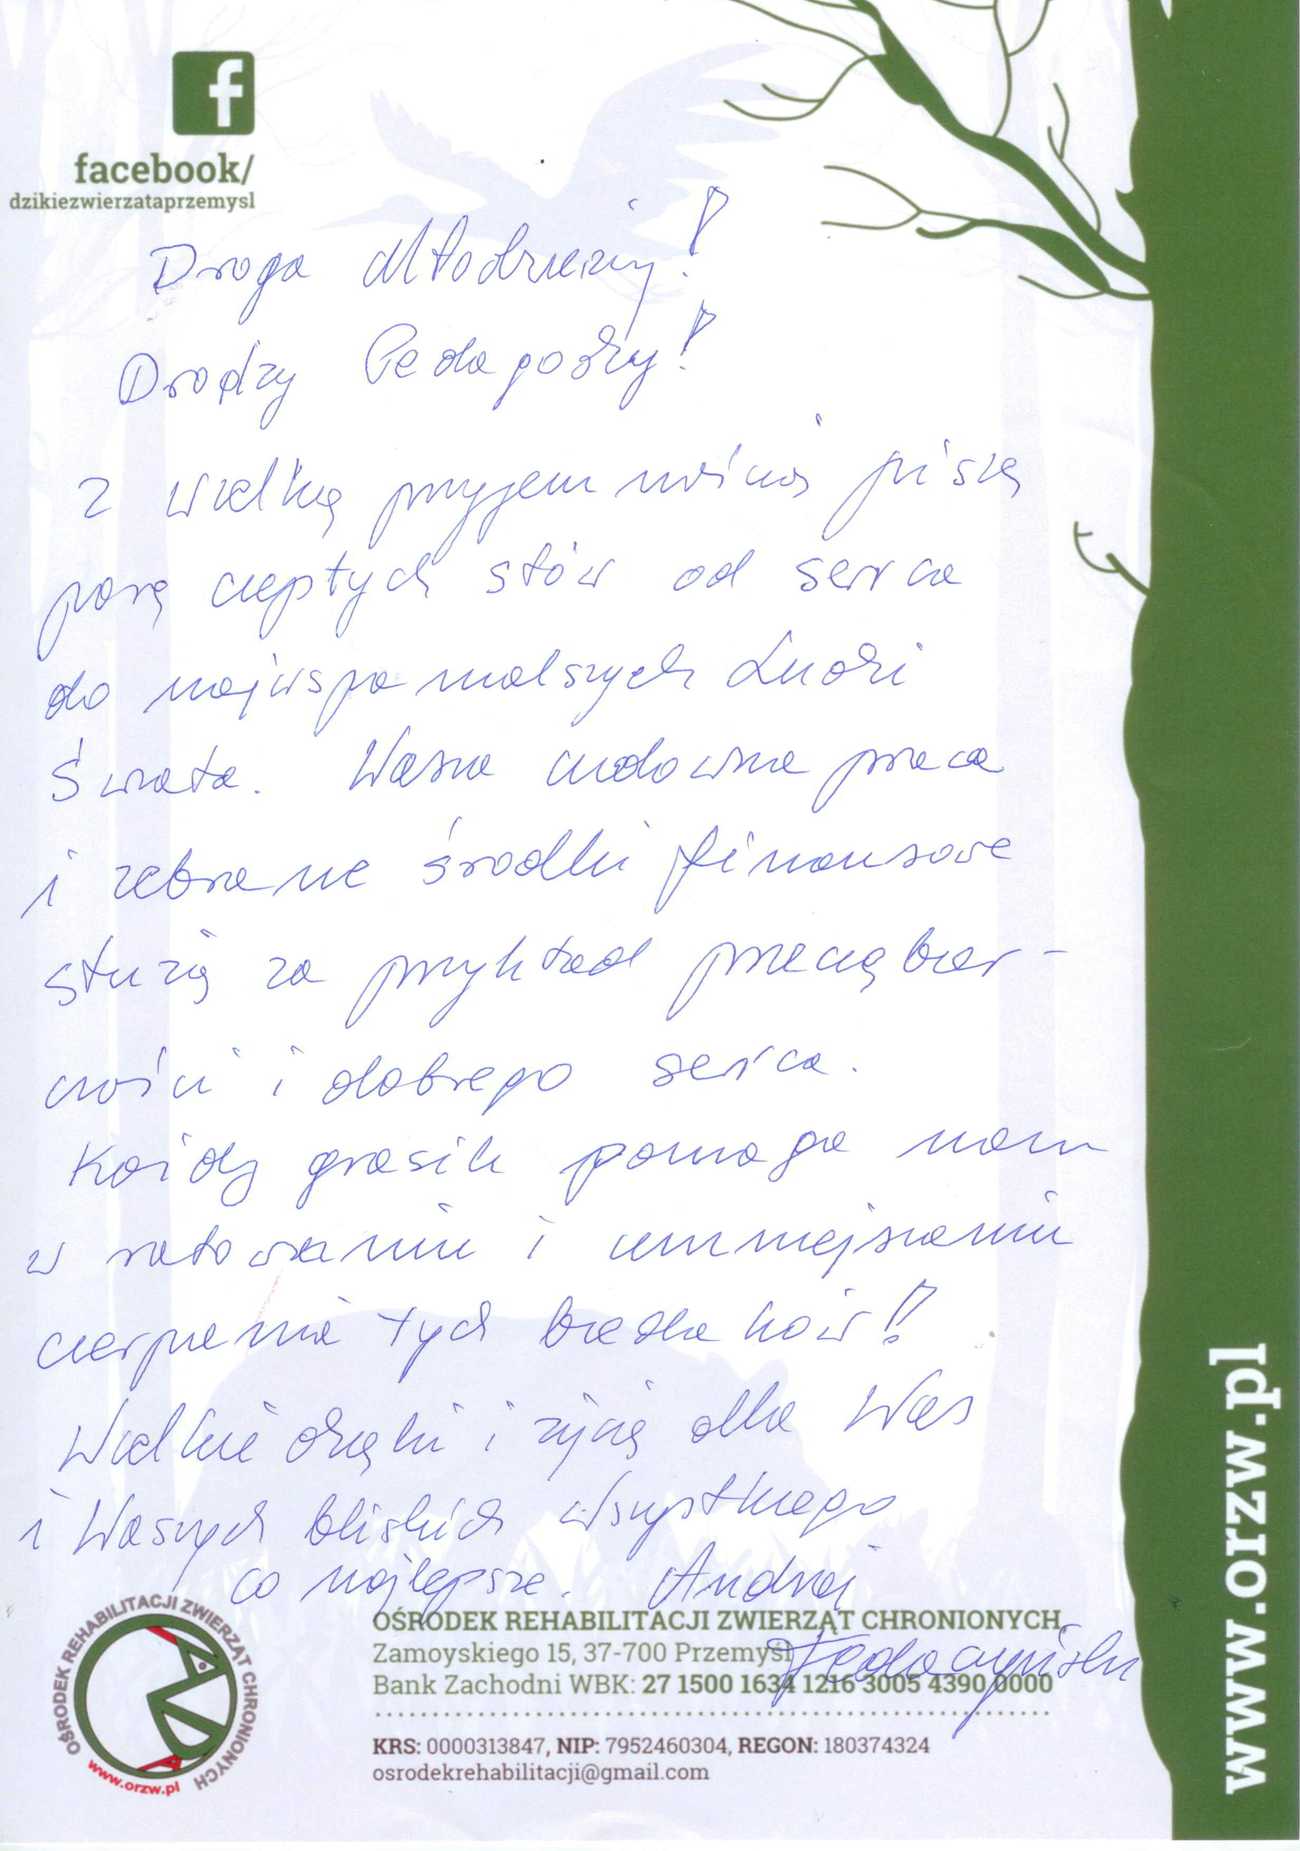 f
facebook/
dzikiezwierzataprzemysl
Droga Młodzieży!
Drodzy Pedagodzy!
Z wielką przyjemnością piszę
parę ciepłych słów od serca
do najwspanialszych Ludzi
Świata. Wasza cudowna praca
i zebrane środki finansowe
służą za przykład pracębior-
czości i dobrego serca.
Każdy grosik pomaga nam
w ratowaniu i umniejszaniu
cierpienia tych biedaków!
Wielkie dzięki i życzę dla Was
i Waszych bliskich wszystkiego
co najlepsze. Andrzej
Fedaczyński
OŚRODEK REHABILITACJI ZWIERZĄT CHRONIONYCH
Zamoyskiego 15, 37-700 Przemyśl
Bank Zachodni WBK: 27 1500 1634 1216 3005 4390 0000
KRS: 0000313847, NIP: 7952460304, REGON: 180374324
osrodekrehabilitacji@gmail.com
OŚRODEK REHABILITACJI ZWIERZĄT CHRONIONYCH
www.orzw.pl
www.orzw.pl